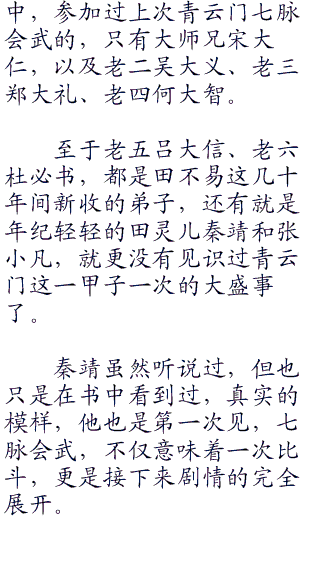 中，参加过上次青云门七脉
会武的，只有大师兄宋大
仁，以及老二吴大义、老三
郑大礼、老四何大智。
至于老五吕大信、老六
杜必书，都是田不易这几十
年间新收的弟子，还有就是
年纪轻轻的田灵儿秦靖和张
小凡，就更没有见识过青云
门这一甲子一次的大盛事
了。
秦靖虽然听说过，但也
只是在书中看到过，真实的
模样，他也是第一次见，七
脉会武，不仅意味着一次比
斗，更是接下来剧情的完全
展开。